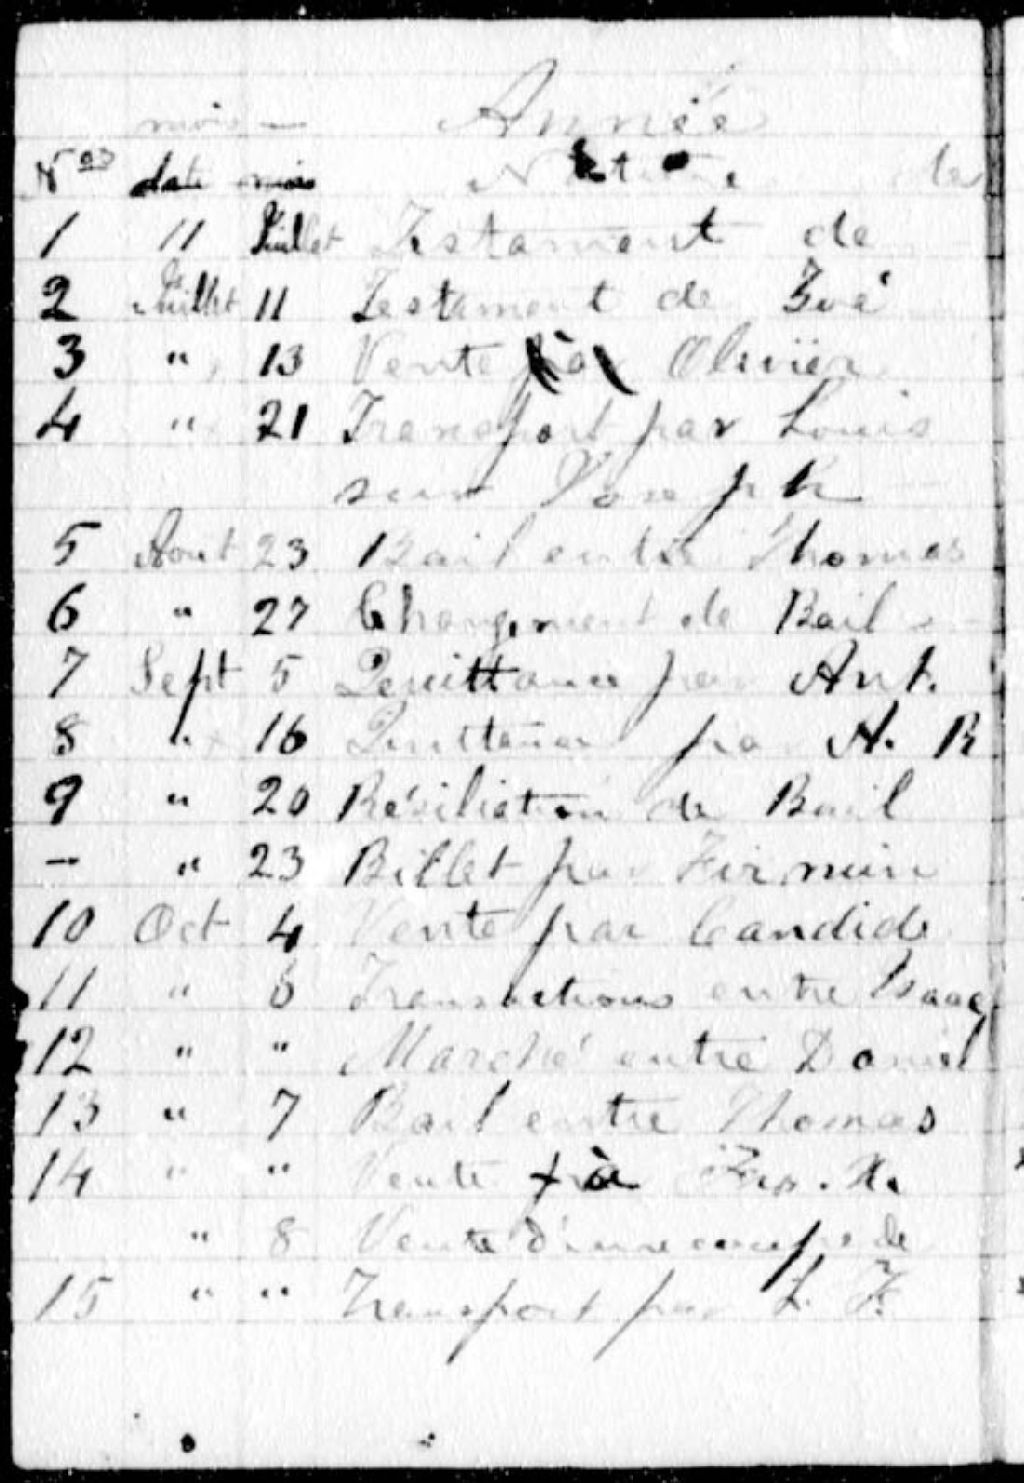 mois — Année
Nos date mois Nature des
1 11 Juillet Testament de
2 Juillet 11 Testament de Zoé
3 " 13 Vente à Olivier
4 " 21 Transport par Louis
sur Joseph
5 Aout 23 Bail entre Thomas
6 " 27 Changement de Bail
7 Sept 5 Quittance par Ant.
8 " 16 Quittance par A. R
9 " 20 Résiliation de Bail
— " 23 Billet par Firmin
10 Oct 4 Vente par Candide
11 " 6 Transactions entre Isaac
12 " " Marché entre Daniel
13 " 7 Bail entre Thomas
14 " " Vente à Frs. X.
" 8 Vente d'une coupe de
15 " " Transport par L. F.